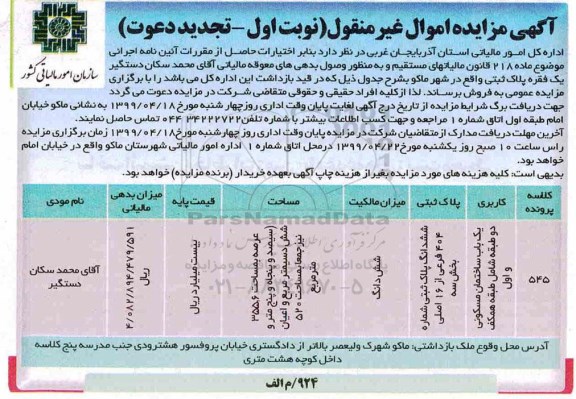 آگهی مزایده اموال غیر منقول (نوبت اول - تجدید دعوت)
سازمان امور مالیاتی کشور
اداره کل امور مالیاتی استان آذربایجان غربی در نظر دارد بنابر اختیارات حاصل از مقررات آئین نامه اجرائی
موضوع ماده ۲۱۸ قانون مالیاتهای مستقیم و به منظور وصول بدهی های معوقه مالیاتی آقای محمد سکان دستگیر
یک فقره پلاک ثبتی واقع در شهر ماکو بشرح جدول ذیل که در قید بازداشت این اداره کل می باشد را با برگزاری
مزایده عمومی به فروش برساند. لذا از کلیه افراد حقیقی و حقوقی متقاضی شرکت در مزایده دعوت می گردد
جهت دریافت برگ شرایط مزایده از تاریخ درج آگهی لغایت پایان وقت اداری روز چهار شنبه مورخ ۱۳۹۹/۰۴/۱۸ به نشانی ماکو خیابان
امام طبقه اول اتاق شماره ۱ مراجعه و جهت کسب اطلاعات بیشتر با شماره تلفن ۳۴۲۲۲۷۲۲ ۰۴۴ تماس حاصل نمایند.
آخرین مهلت دریافت مدارک از متقاضیان شرکت در مزایده پایان وقت اداری روز چهارشنبه مورخ ۱۳۹۹/۰۴/۱۸ زمان برگزاری مزایده
راس ساعت ۱۰ صبح روز یکشنبه مورخ ۱۳۹۹/۰۴/۲۲ در محل اتاق شماره ۱ اداره امور مالیاتی شهرستان ماکو واقع در خیابان امام
خواهد بود.
بدیهی است: کلیه هزینه های مورد مزایده بغیر از هزینه چاپ آگهی بعهده خریدار (برنده مزایده) خواهد بود.
کلاسه پرونده
کاربری
پلاک ثبتی
میزان مالکیت
مساحت
قیمت پایه
میزان بدهی مالیاتی
نام مودی
۵۴۵
یک باب ساختمان مسکونی دو طبقه شامل طبقه همکف و اول
ششدانگ پلاک ثبتی شماره ۴۰۴ فرعی از ۱۶ اصلی بخش سه
شش دانگ
عرصه بمساحت ۳۵۵.۶ (سیصد و پنجاه و پنج متر و شش دسیمتر مربع و اعیان نیز جمعا بمساحت ۵۲۰ متر مربع
بیست میلیارد ریال
۴/۰۸۲/۸۹۴/۴۷۹/۵۹۱ ریال
آقای محمد سکان دستگیر
ParsNamadData
آدرس محل وقوع ملک بازداشتی: ماکو شهرک ولیعصر بالاتر از دادگستری خیابان پروفسور هشترودی جنب مدرسه پنج کلاسه
داخل کوچه هشت متری
۹۲۴/م الف